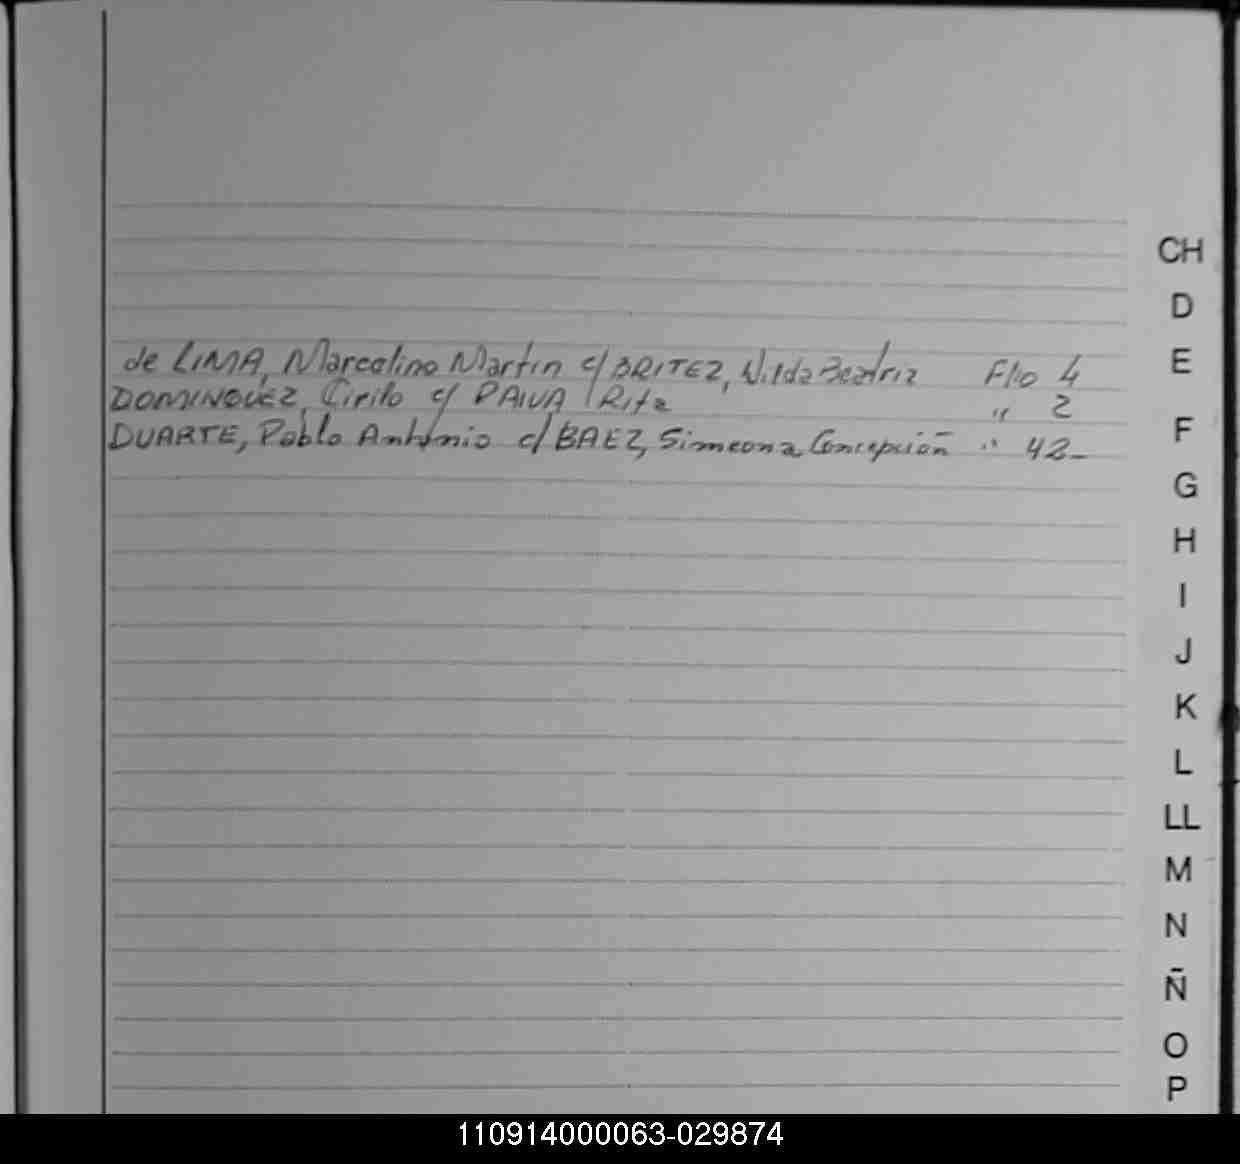 CH
D
de LIMA, Marcelino Martin c/ BRITEZ, Nilda Beatriz Flio 4
E
DOMINGUEZ, Cirilo c/ PAIVA Rita " 2
DUARTE, Pablo Antonio c/ BAEZ, Simeona Concepción " 42-
F
G
H
I
J
K
L
LL
M
N
Ñ
O
P
110914000063-029874